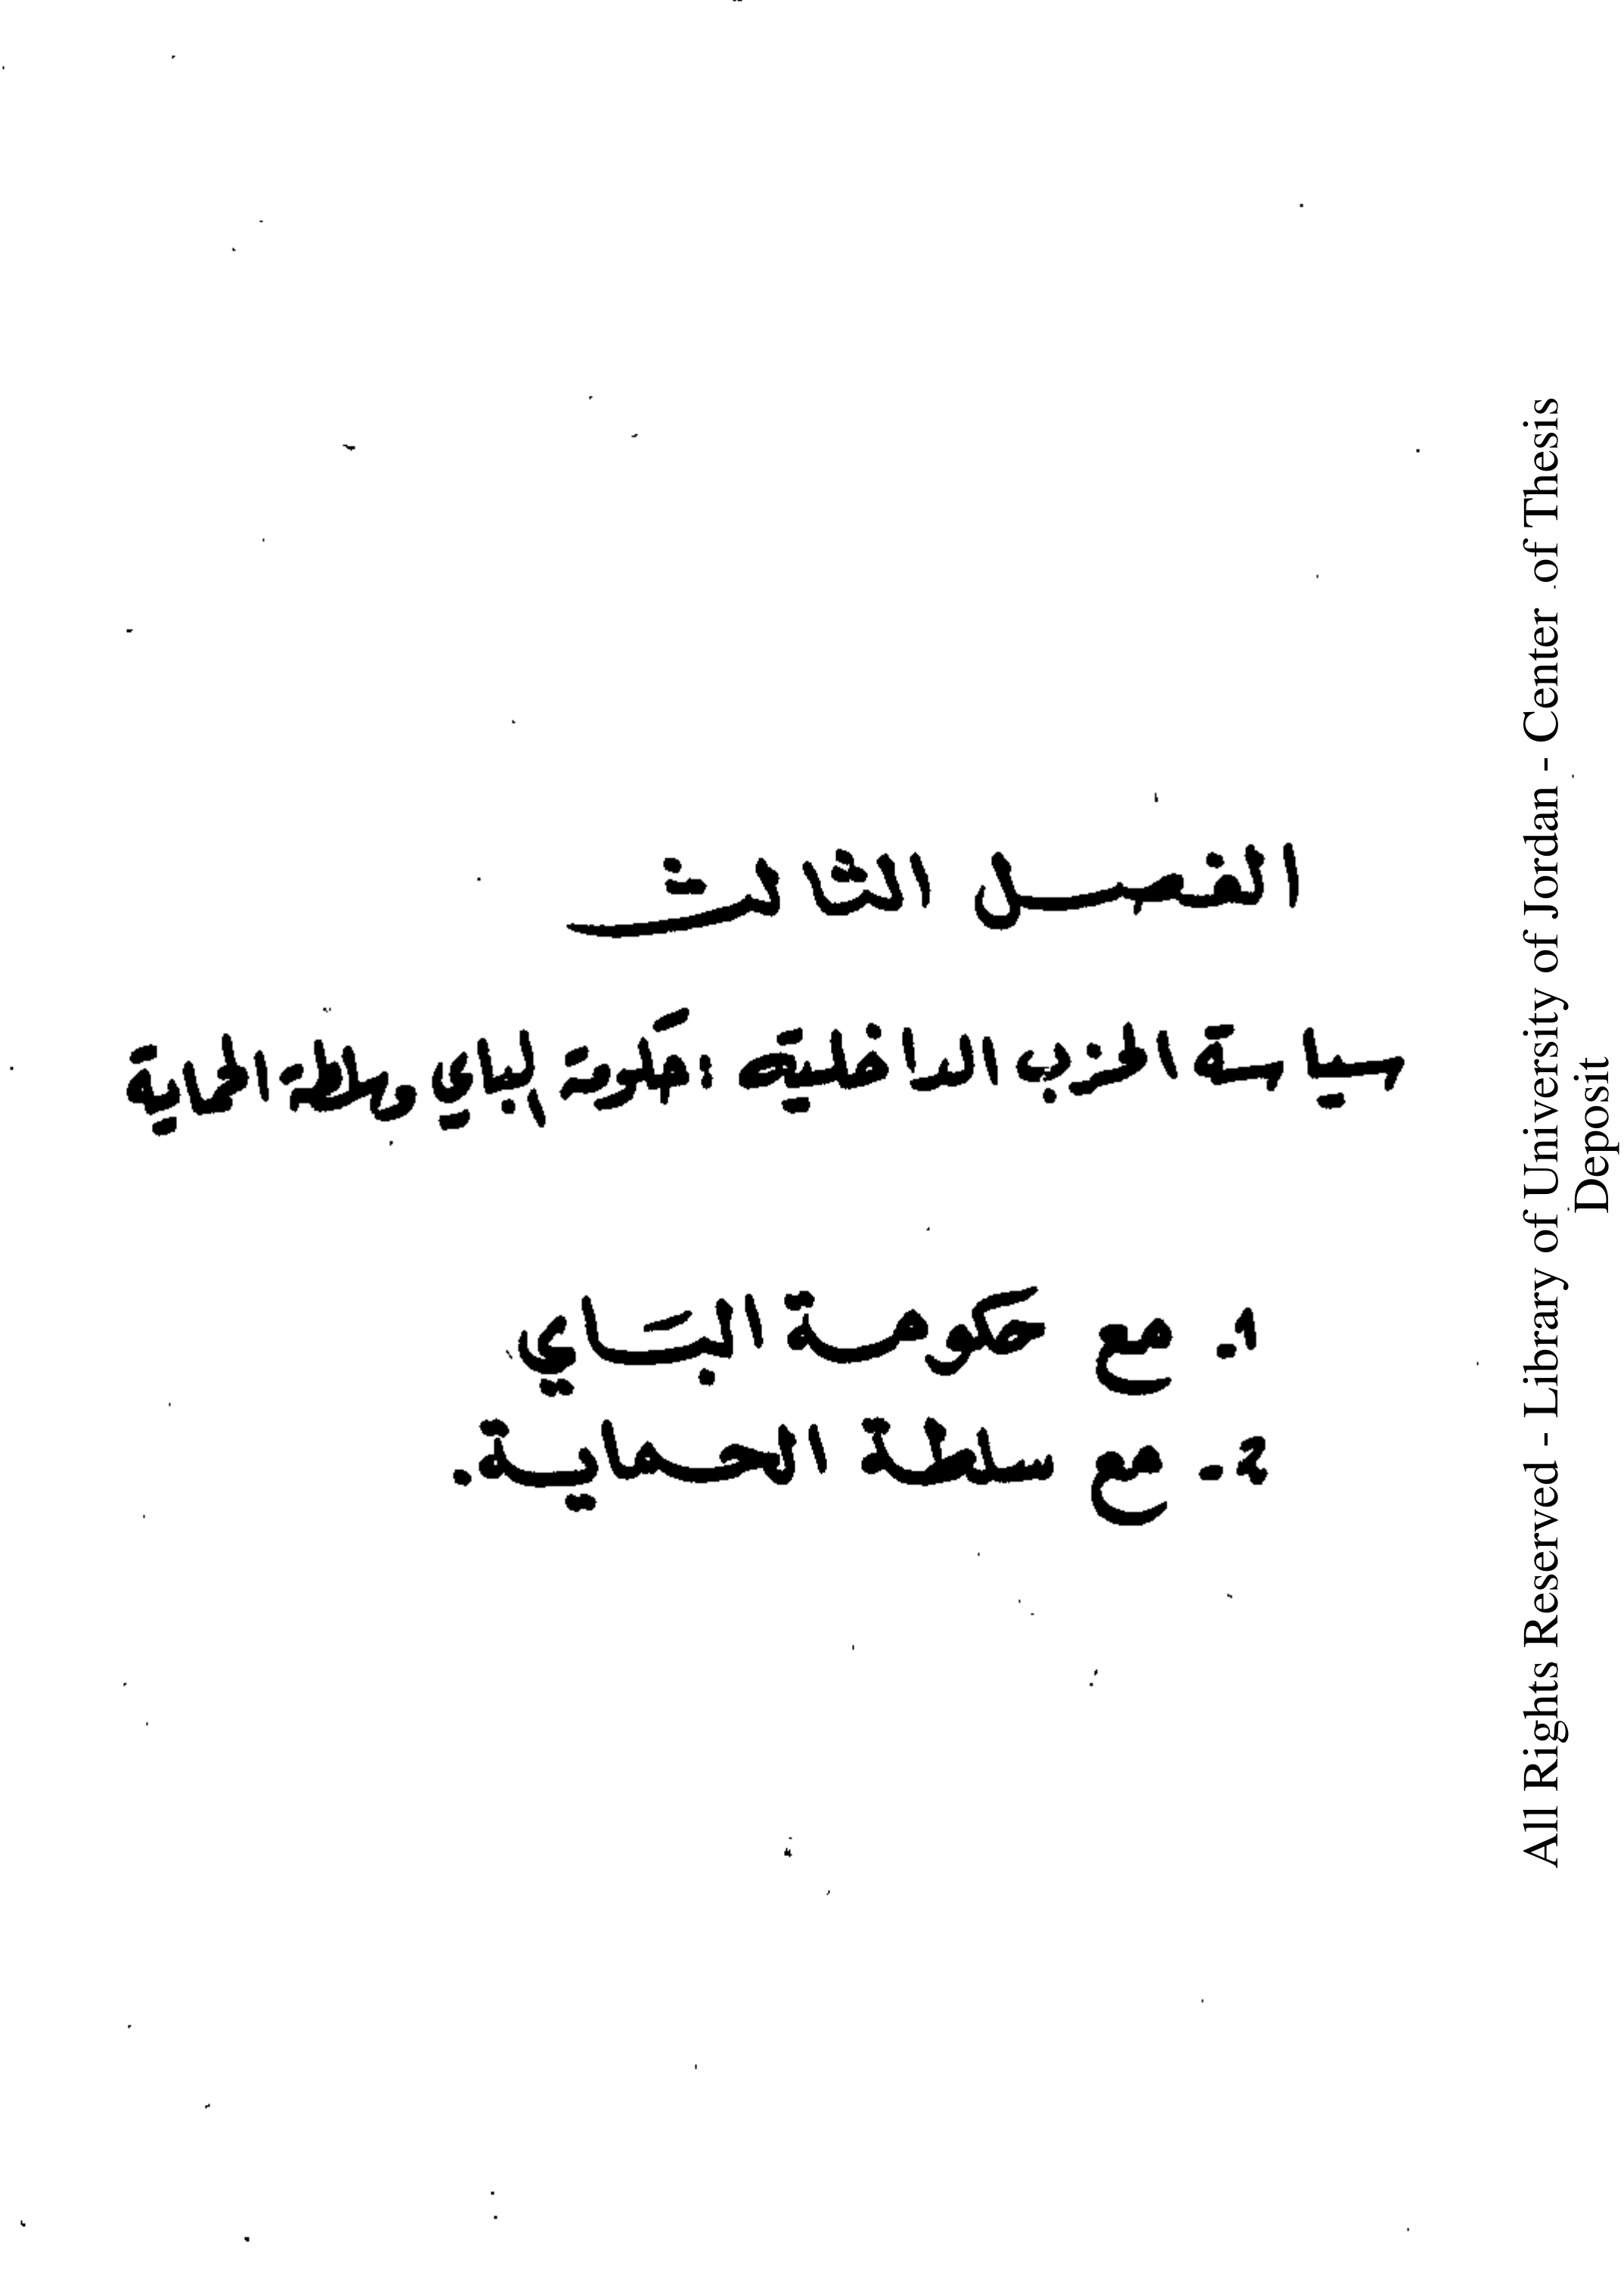 الفصل الثالث
سياسة الحزب الداخلية : حكومة الباي وسلطة الحماية
1. مع حكومة الباي
2- مع سلطة الحماية.
All Rights Reserved - Library of University of Jordan - Center of Thesis
Deposit